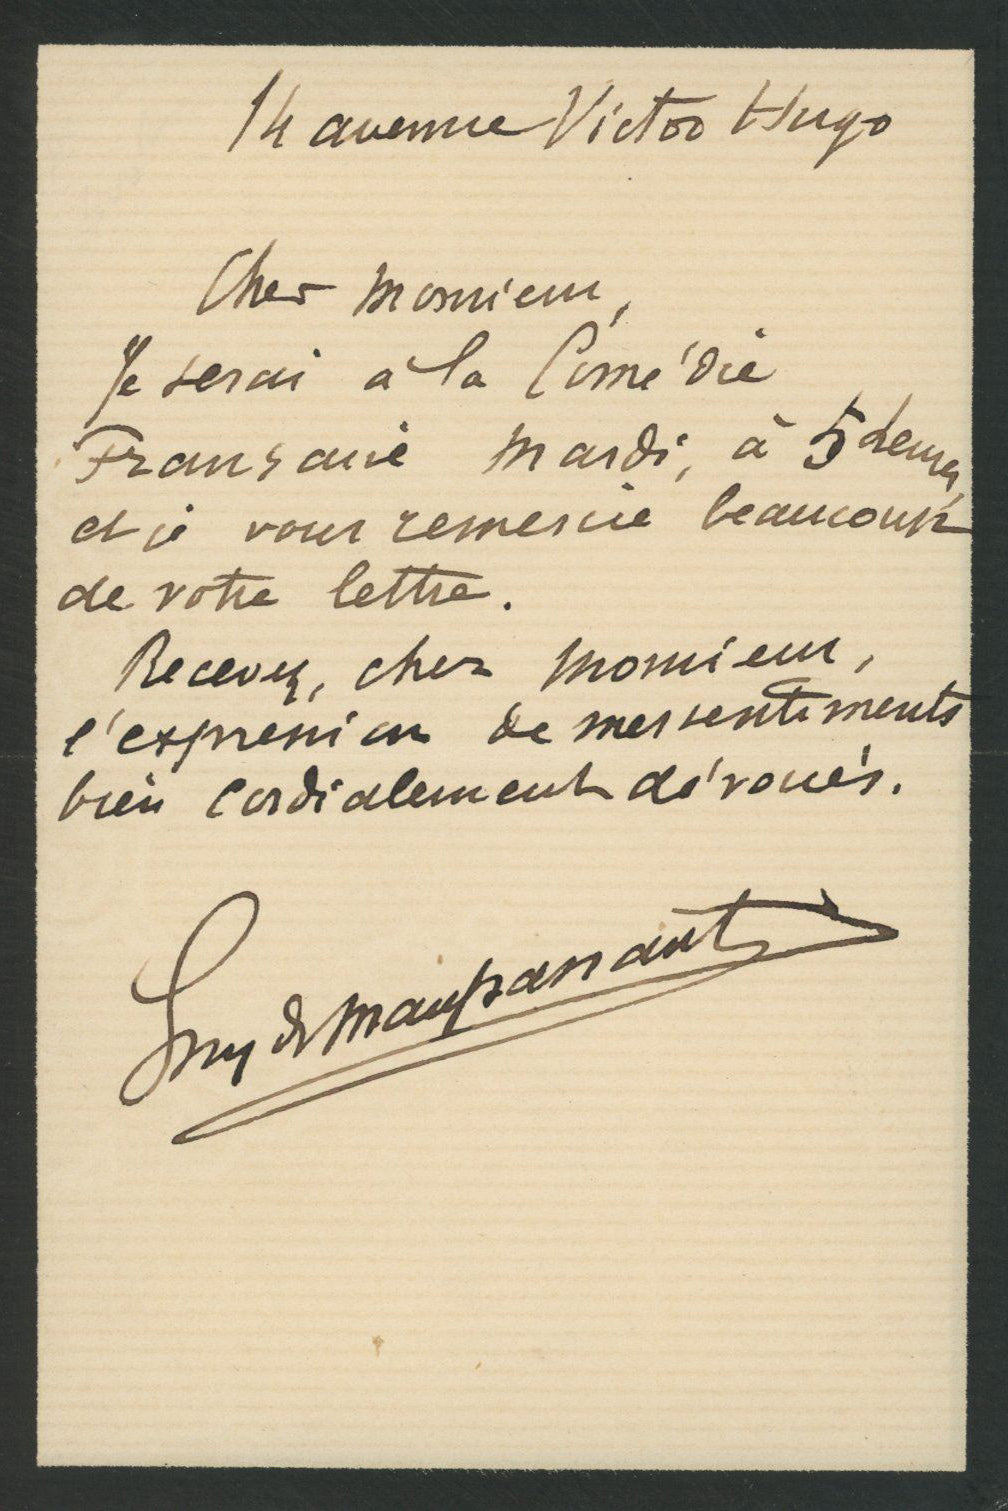 14 avenue Victor Hugo
Cher Monsieur,
Je serai à la Comédie
Française Mardi, à 5 heures,
et je vous remercie beaucoup
de votre lettre.
Recevez, cher Monsieur,
l'expression de mes sentiments
bien cordialement dévoués.
Guy de Maupassant